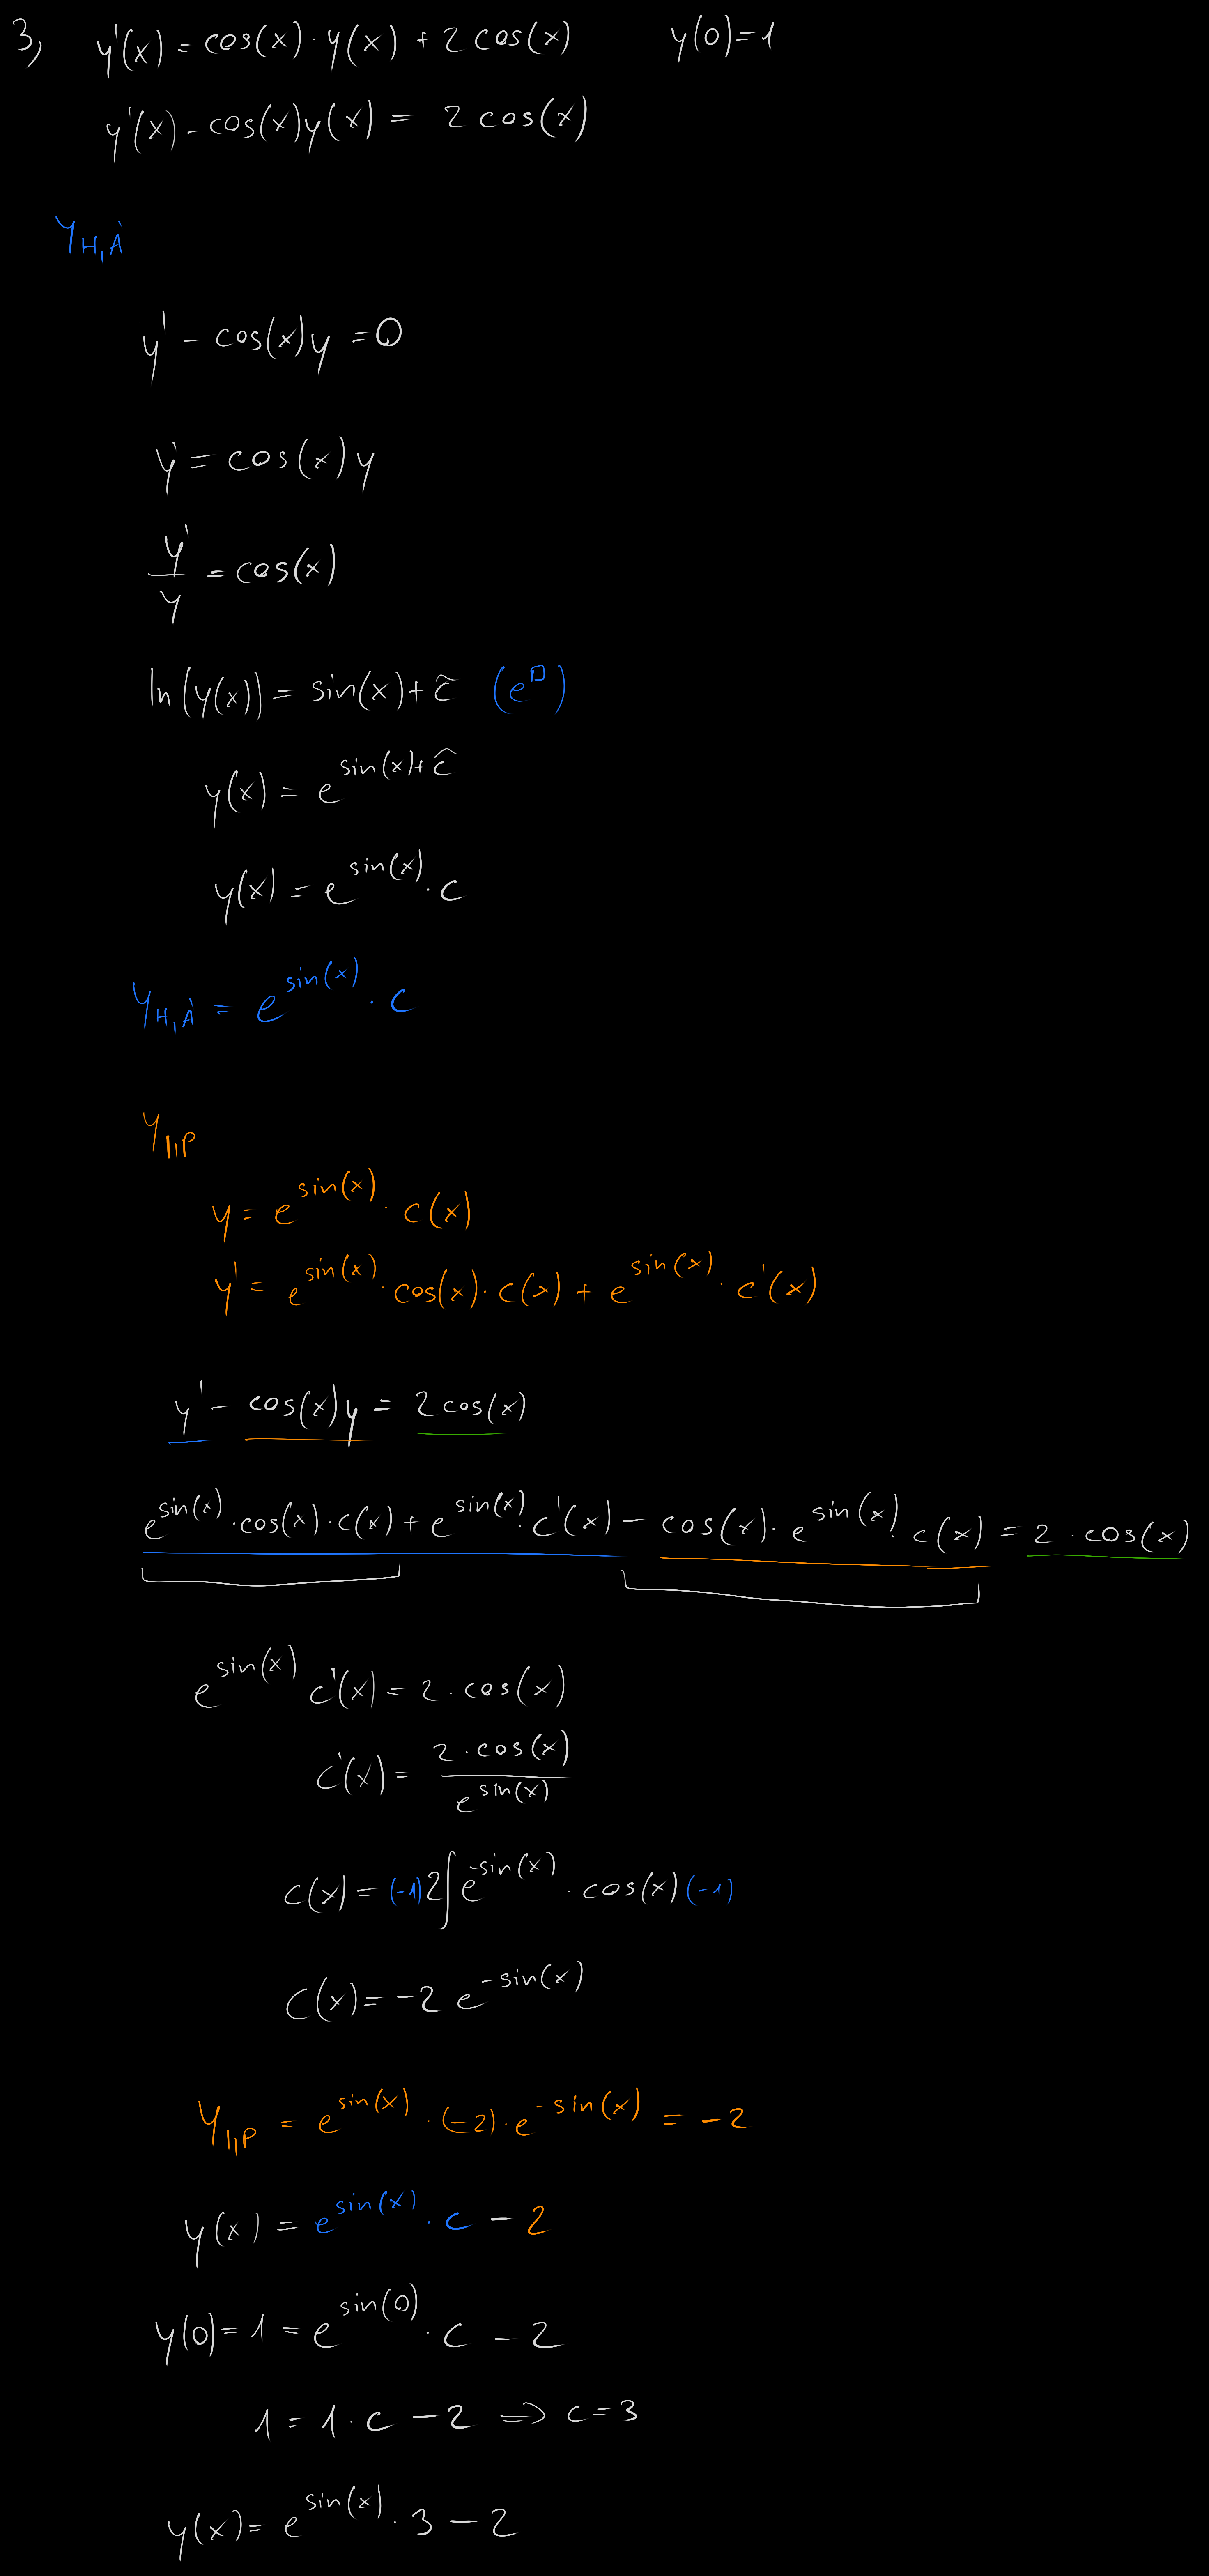 3, y'(x) = cos(x) · y(x) + 2 cos(x) y(0) = 1
y'(x) - cos(x)y(x) = 2 cos(x)
Y_{H,Á}
y' - cos(x)y = 0
y' = cos(x)y
y'/y = cos(x)
ln(y(x)) = sin(x) + c̃ (e^□)
y(x) = e^{sin(x) + ĉ}
y(x) = e^{sin(x)} · c
Y_{H,Á} = e^{sin(x)} · c
Y_{I,P}
y = e^{sin(x)} · c(x)
y' = e^{sin(x)} · cos(x) · c(x) + e^{sin(x)} · c'(x)
y' - cos(x)y = 2cos(x)
e^{sin(x)} · cos(x) · c(x) + e^{sin(x)} · c'(x) - cos(x) · e^{sin(x)} · c(x) = 2 · cos(x)
e^{sin(x)} c'(x) = 2 · cos(x)
c'(x) = 2 · cos(x) / e^{sin(x)}
c(x) = (-1)2∫e^{-sin(x)} · cos(x)(-1)
c(x) = -2 e^{-sin(x)}
Y_{I,P} = e^{sin(x)} · (-2) · e^{-sin(x)} = -2
y(x) = e^{sin(x)} · c - 2
y(0) = 1 = e^{sin(0)} · c - 2
1 = 1 · c - 2 ⇒ c = 3
y(x) = e^{sin(x)} · 3 - 2